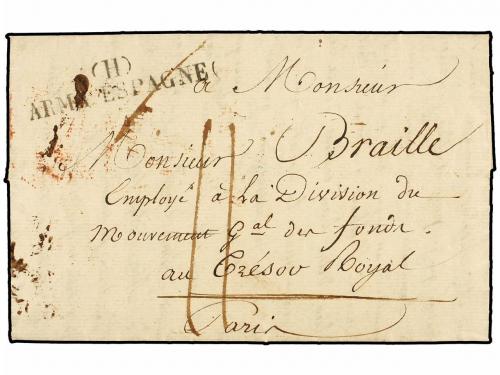 (H)
ARM. ESPAGNE
à Monsieur
Monsieur Braille
Employé à la Division du
Mouvement Gal des fonds.
au Trésor Royal
Paris